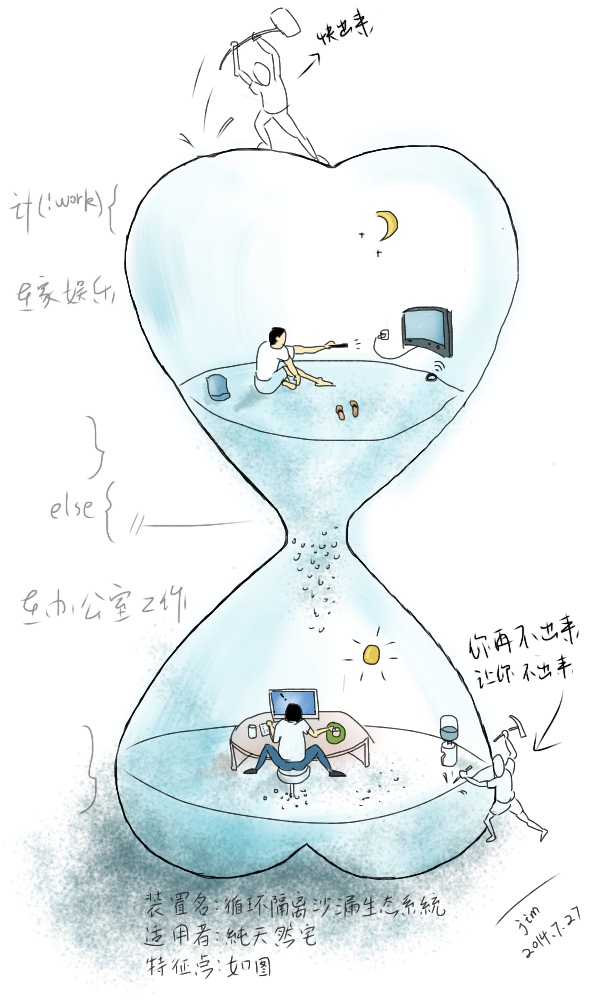 快出来
计(!work){
在家娱乐
}
else{ //
在办公室工作
}
你再不出来
让你不出来
装置名:循环隔离沙漏生态系統
适用者:純天然宅
特征点:如图
jim
2014.7.27